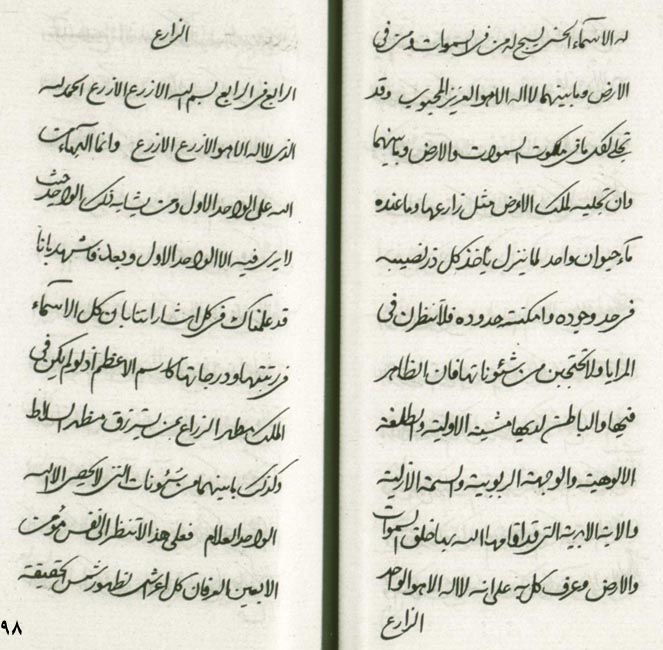 له الاسماء الحسنى يسبح له من في السموات ومن في
الارض وما بينهما لا اله الا هو العزيز المحبوب وقد
تجلى لكل ما في ملكوت السموات والارض وما بينهما
وان تجليه لملك الارض مثل زارعها وما عنده
ماء حيوان واحد لما ينزل ياخذ كل ذر نصيبه
في حد وجوده وامكنته حدوده فلا تنظرن في
المرايا ولا تحتجبن من شئوناتها فان الظاهر
فيها والباطن لديها مشية الاولية والطلعة
الالوهية والوجهة الربوبية والسمة الازلية
والاية الابدية التي قد اقامها الله بها خلق السموات
والارض وعرف كل به على انه لا اله الا هو الواحد
الزارع
الزارع
الرابع في الرابع بسم الله الازرع الازرع الحمد لله
الذي لا اله الا هو الازرع الازرع وانما البهاء من
الله على الواحد الاول ومن يشابه ذلك الواحد حيث
لا يرى فيه الا الواحد الاول وبعد فاشهد بانا
قد علمناك في كل اشاراتنا بان كل الاسماء
في رتبتها ودرجاتها كاسم الاعظم اذ لو لم يكن في
الملك مظهر الزراع عمن يسترزق مظهر السلاط
وكذلك ما بينهما من شئونات التي لا يحصى الا الله
الواحد العلام فعلى هذا لا تنظر الى نفس مؤمن
الا بعين العرفان كل اعراش لظهور شمس الحقيقة
٩٨